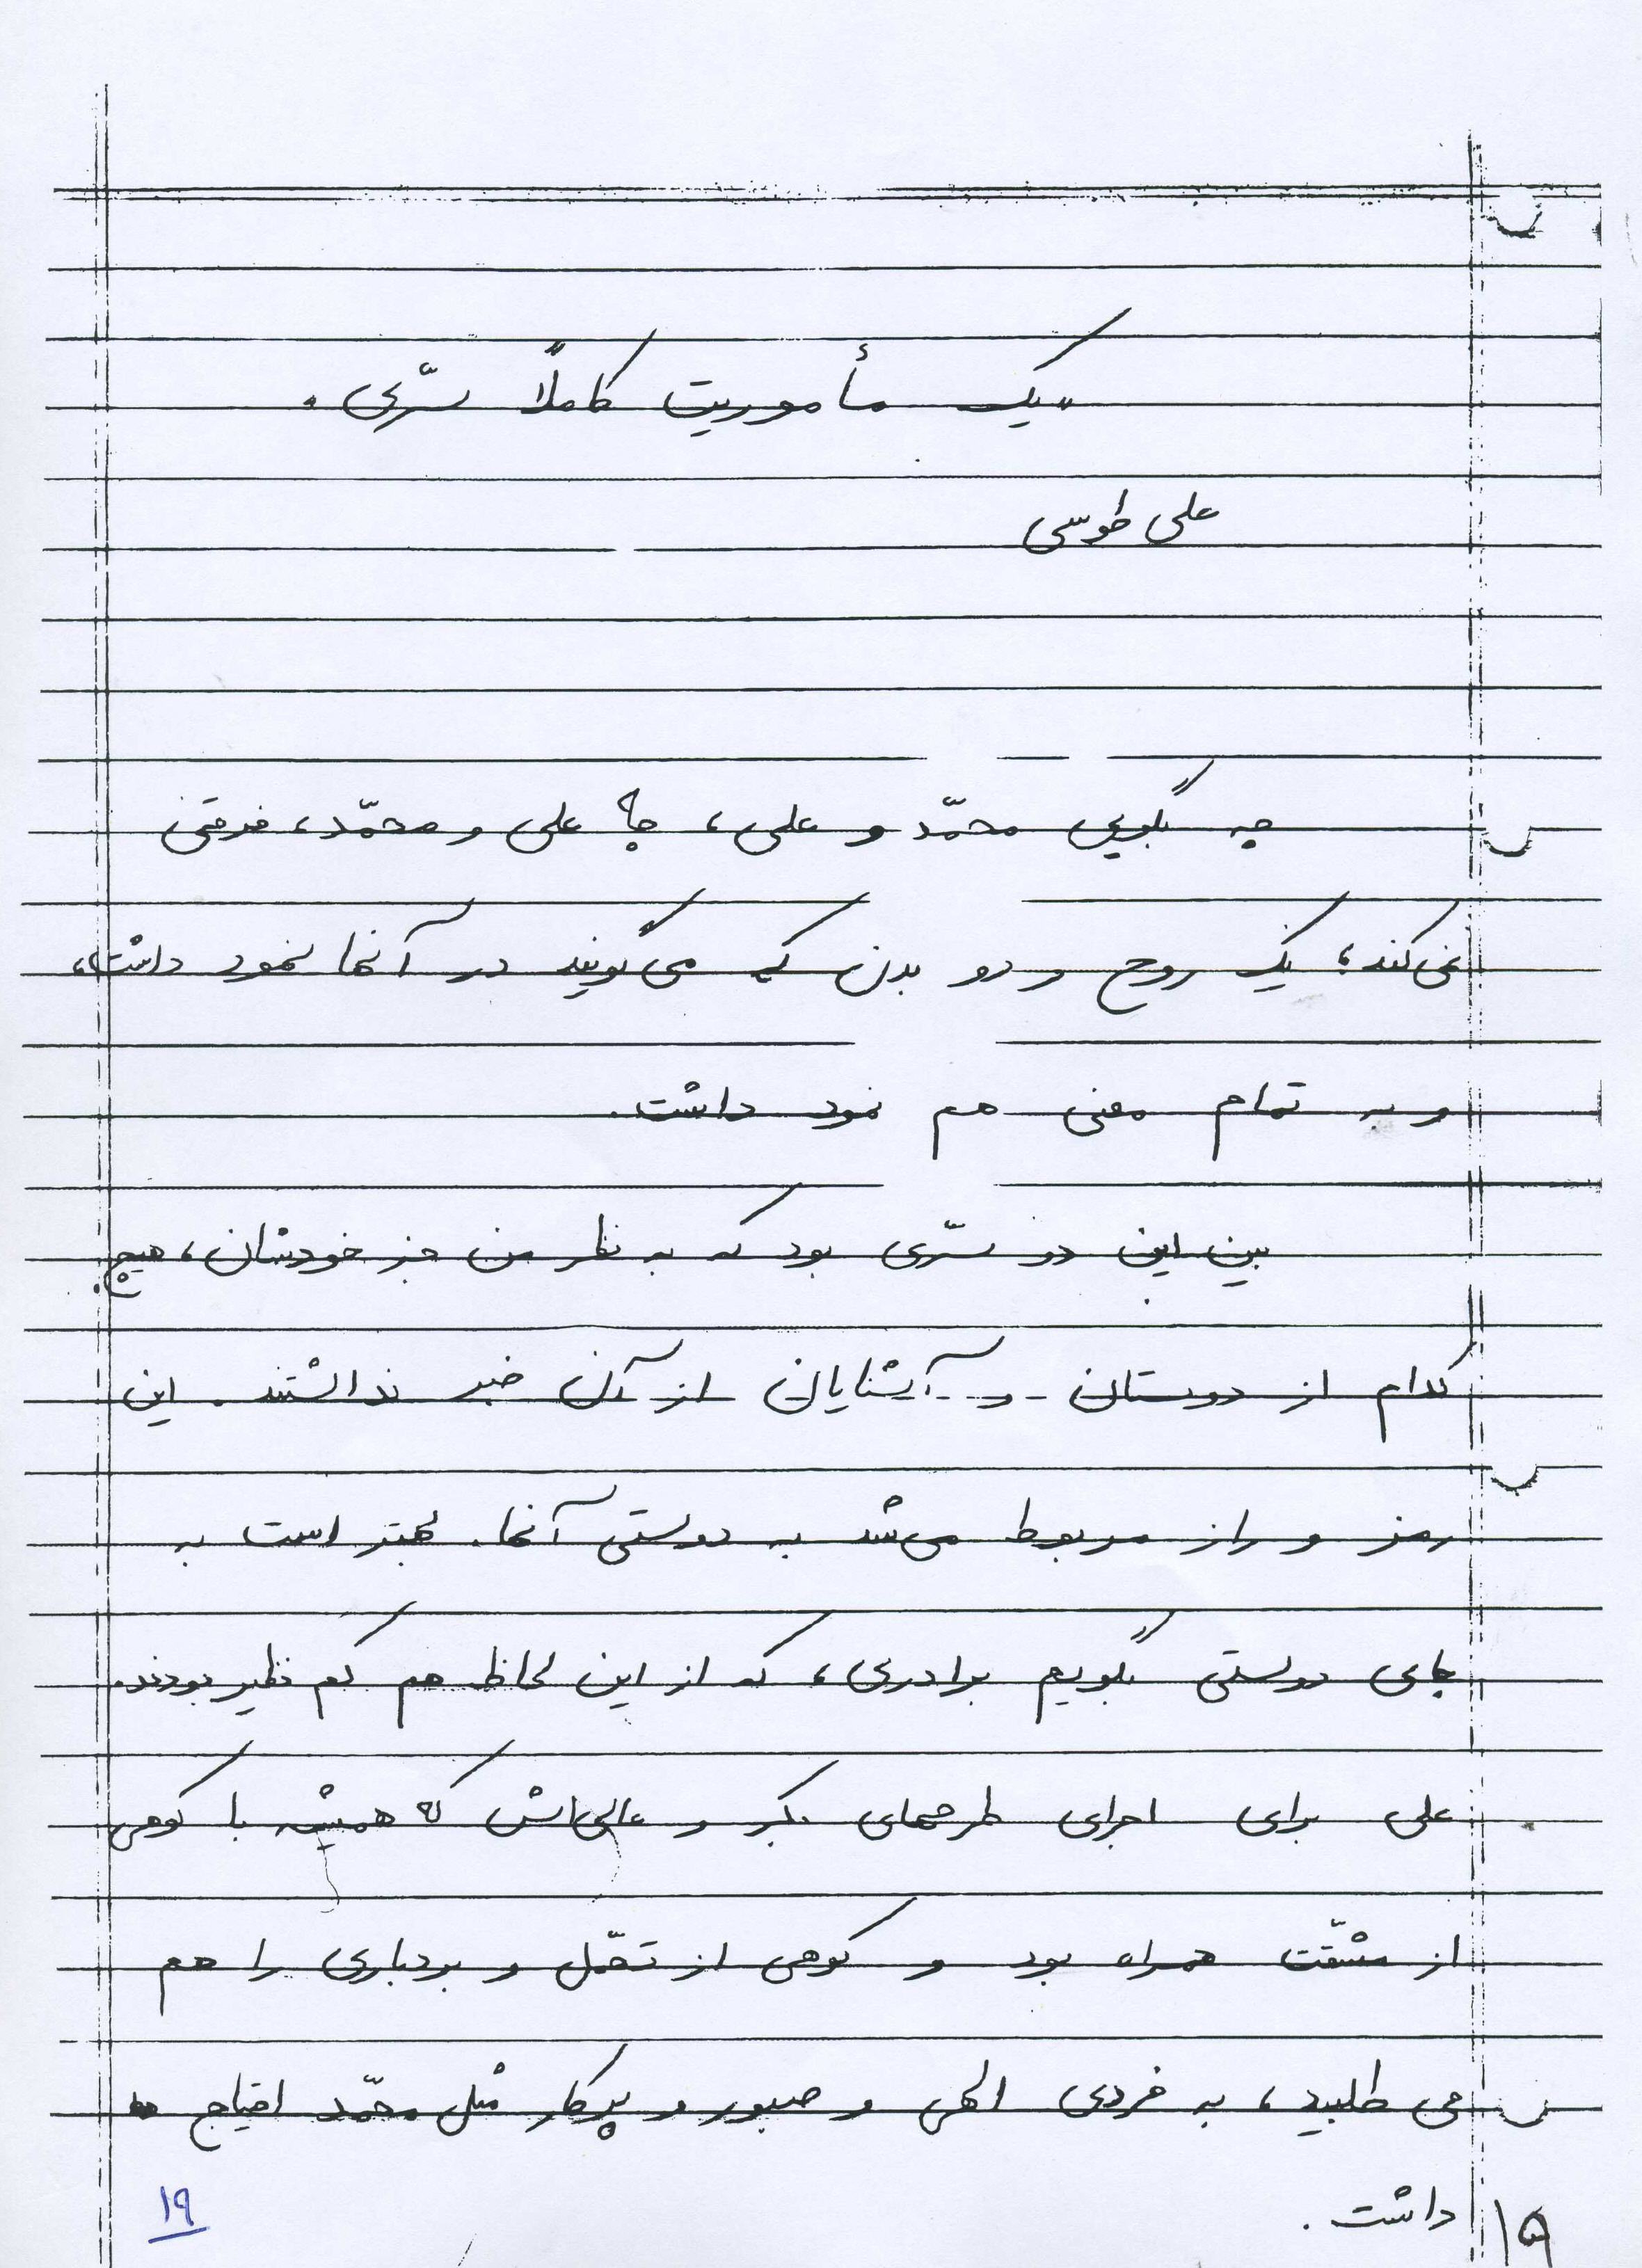 «یک مأموریت کاملاً سرّی»
علی طوسی
چه بگویی محمّد و علی، چه علی و محمّد، فرقی
نمی‌کند؛ یک روح و دو بدن که می‌گویند در آنها نمود داشت،
و به تمام معنی هم نمود داشت.
بین این دو سرّی بود که به نظر من جز خودشان، هیچ
کدام از دوستان و آشنایان از آن خبر نداشتند. این
رمز و راز مربوط می‌شد به دوستی آنها. بهتر است به
جای دوستی بگویم برادری، که از این لحاظ هم کم نظیر بودند.
علی برای اجرای طرحهای بکر و عالی‌اش که همیشه با کوهی
از مشقّت همراه بود و کوهی از تحمّل و بردباری را هم
می طلبید، به فردی الهی و صبور و پرکار مثل محمّد احتیاج
داشت.
۱۹
۱۵